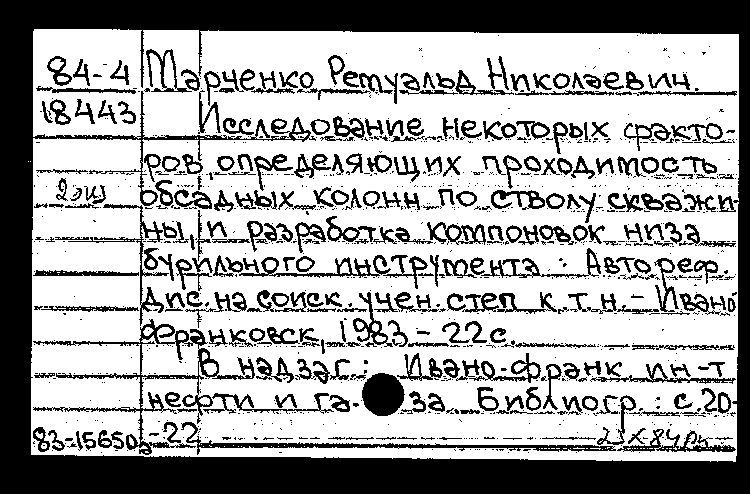 84-4 Марченко, Ретуальд Николаевич.
18443 Исследование некоторых факто-
ров, определяющих проходимость
2 экз обсадных колонн по стволу скважи-
ны, и разработка компоновок низа
бурильного инструмента : Автореф.
дис. на соиск. учен. степ к. т. н. - Ивано
Франковск, 1983 - 22 с.
В надзаг.: Ивано-франк. ин-т
нефти и га- за Библиогр : с. 20-
83-15650 -22